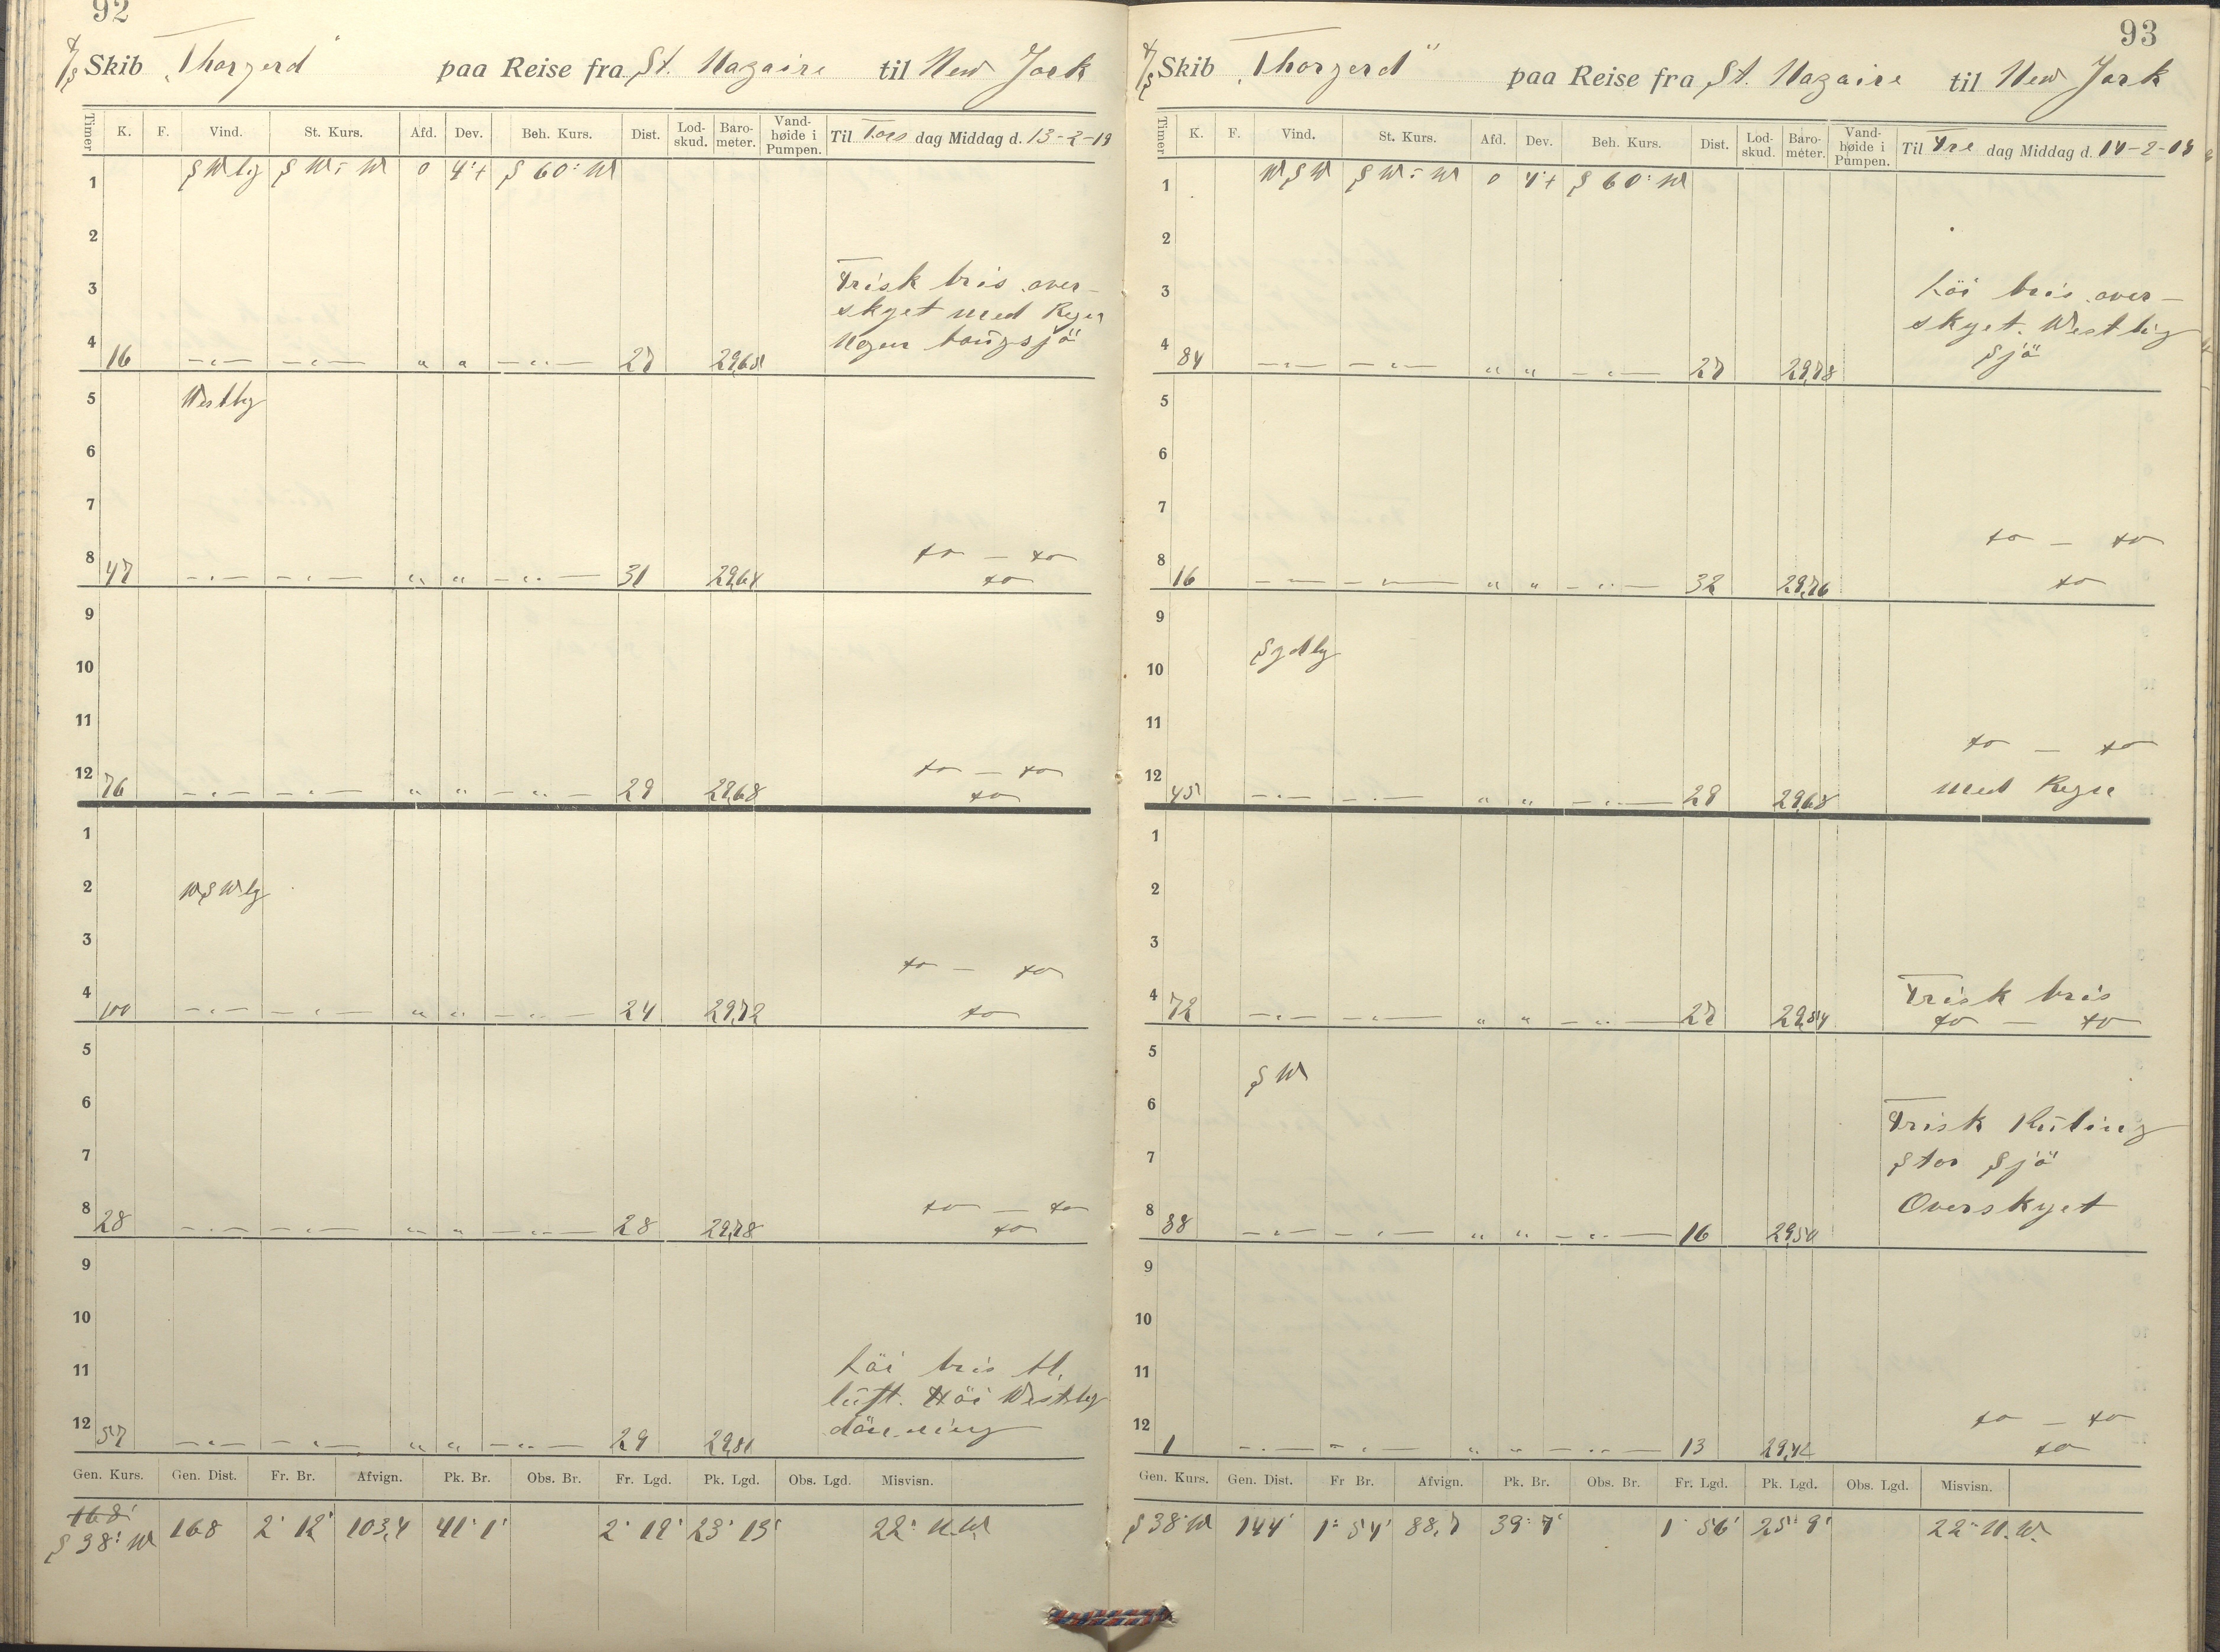 92
D/S Skib "Thorgerd" paa Reise fra St. Nazaire til New York
Timer K. F. Vind. St. Kurs. Afd. Dev. Beh. Kurs. Dist. Lod-skud. Baro-meter. Vand-høide i Pumpen. Til Tors dag Middag d. 13-2-19
1 SWlig SW¾W 0 4°+ S60°W
2
3 Frisk bris over-
skyet med Regn
4 16 -"- -"- " " -"- 27 Nogen tongsjö
5 Westlig
6
7
8 47 -"- -"- " " -"- 31 29,64 do - do
do
9
10
11
12 76 -"- -"- " " -"- 29 29,68 do - do
do
1
2 WSWlig
3 do - do
4 100 -"- -"- " " -"- 24 29,72 do
5
6
7
8 28 -"- -"- " " -"- 28 29,78 do - do
do
9
10
11 Löi bris
luft. Höi Westlig
12 57 -"- -"- " " -"- 29 dönning
Gen. Kurs. Gen. Dist. Fr. Br. Afvign. Pk. Br. Obs. Br. Fr. Lgd. Pk. Lgd. Obs. Lgd. Misvisn.
168'
S38°W 168 2° 12' 103,4 41° 1' 2° 18' 23° 13' 22° N.W.
93
D/S Skib "Thorgerd" paa Reise fra St. Nazaire til New York
Timer K. F. Vind. St. Kurs. Afd. Dev. Beh. Kurs. Dist. Lod-skud. Baro-meter. Vand-høide i Pumpen. Til Fre dag Middag d. 14-2-19
1 WSW SW¾W 0 4°+ S60°W
2
3 Löi bris over-
skyet. Westlig
4 84 -"- -"- " " -"- 27 29,78 Sjö
5
6
7
8 16 -"- -"- " " -"- 32 29,76 do - do
do
9
10 Sydlig
11 do - do
12 45 -"- -"- " " -"- 29 29,68 med Regn
1
2
3
4 72 -"- -"- " " -"- 27 Frisk bris
do - do
5 SW
6 Frisk Kuling
7 Stor Sjö
8 88 -"- -"- " " -"- 16 29,50 Overskyet
9
10
11
12 1 -"- -"- " " -"- 13 do - do
do
Gen. Kurs. Gen. Dist. Fr Br. Afvign. Pk. Br. Obs. Br. Fr. Lgd. Pk. Lgd. Obs. Lgd. Misvisn.
S38°W 144' 1° 54' 88,7 39° 7' 1° 56' 25° 9' 22° N.W.